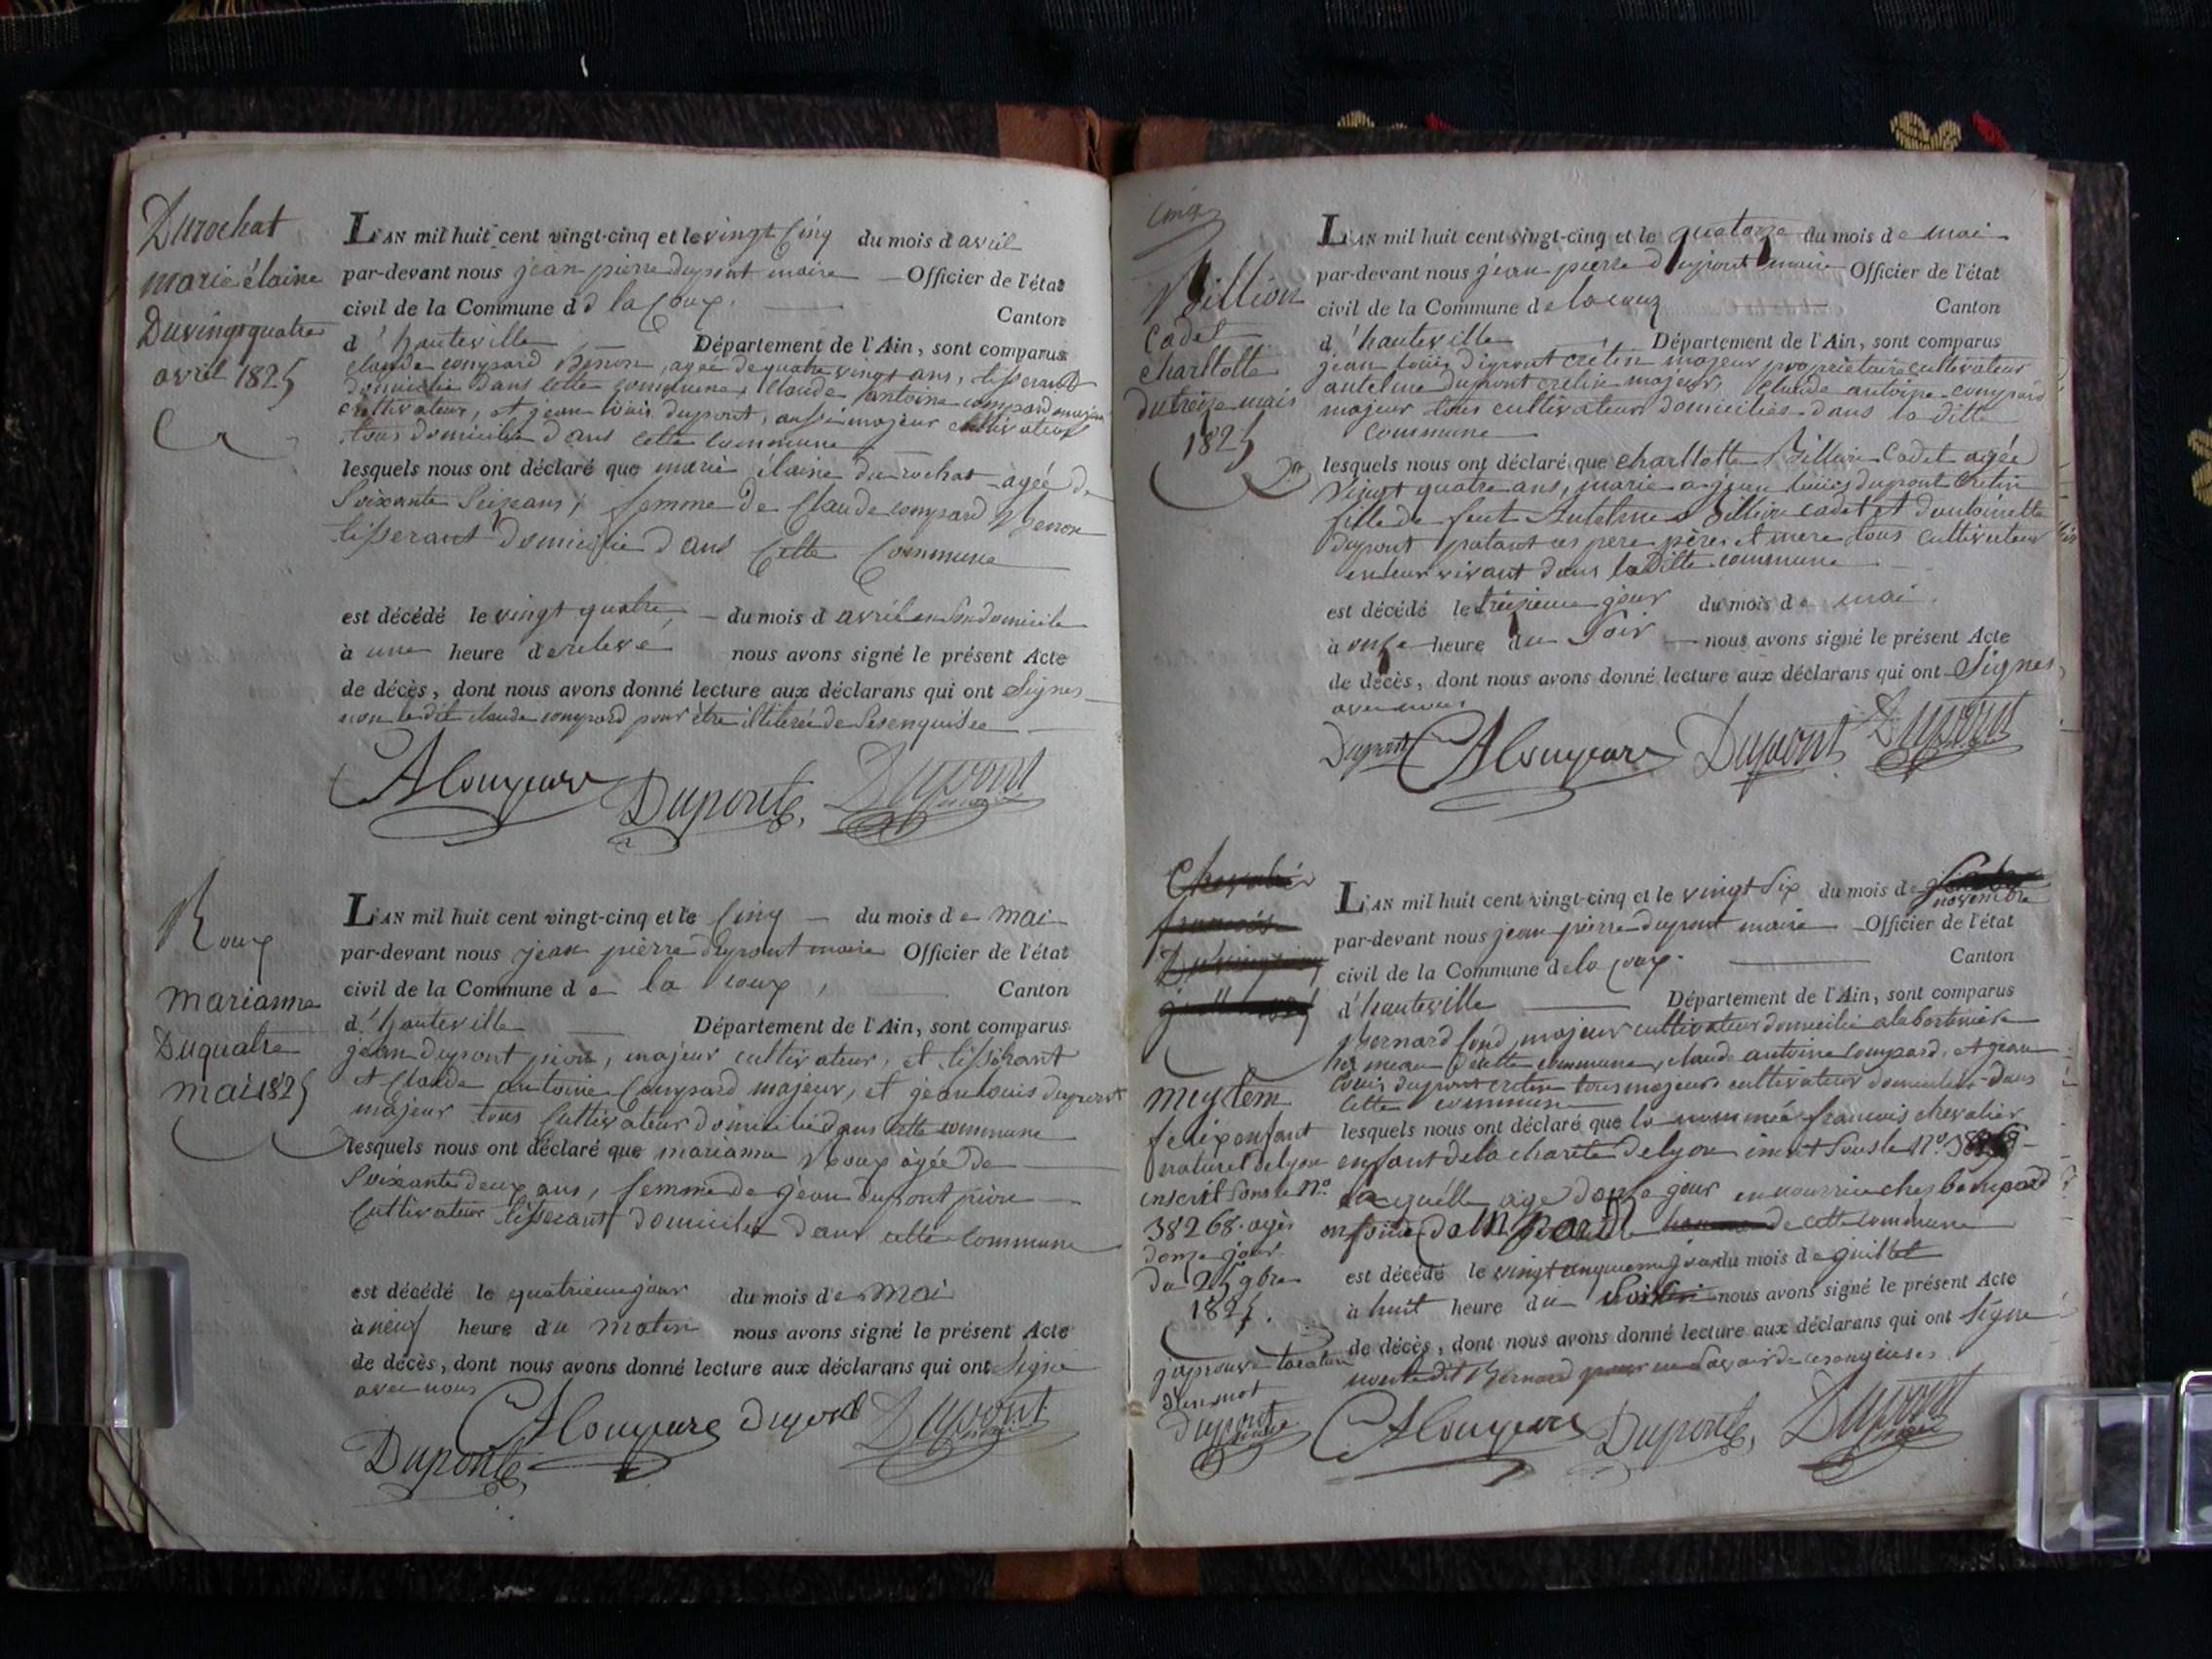 Durochat
marie élaine
Du vingt quatre
avril 1825
L'AN mil huit cent vingt-cinq et le vingt cinq du mois d avril
par-devant nous jean pierre dupont maire Officier de l'état
civil de la Commune d d la Coux. Canton
d'hauteville Département de l'Ain, sont comparus
claude compard Benon, agée de quatre vingt ans, tisserand
domicilié dans cette commune, Claude antoine compard majeur
cultivateur, et jean louis dupont, aussi majeur cultivateur
tous domicilié dans cette commune
lesquels nous ont déclaré que marie élaine durochat agée de
Soixante Seize ans, femme de Claude compard Benon
tisserant domicilié dans Cette Commune
est décédé le vingt quatre du mois d avril en Son domicile
à une heure de relevé nous avons signé le présent Acte
de décès, dont nous avons donné lecture aux déclarans qui ont Signes
non le dit claude compard pour être illiterée de Ses enquise
CAcompare Dupont Dupont
Roux
marianne
Du quatre
mai 1825
L'AN mil huit cent vingt-cinq et le Cinq du mois de mai
par-devant nous jean pierre dupont maire Officier de l'état
civil de la Commune d e la coux, Canton
d'hauteville Département de l'Ain, sont comparus
jean dupont pivre, majeur cultivateur, et tisserant
et Claude antoine Compard majeur, et jean louis dupont
majeur tous Cultivateur domicilié dans cette commune
lesquels nous ont déclaré que marianne Roux âgée de
Soixante deux ans, femme de jean dupont pivre
Cultivateur tisserant domicilié dans cette commune
est décédé le quatrieme jour du mois de mai
à neuf heure du matin nous avons signé le présent Acte
de décès, dont nous avons donné lecture aux déclarans qui ont Signé
avec nous
Dupont CAcompare dupont Dupont
cinq
Billion
Cadet
charllotte
du treize mais
1825
L'AN mil huit cent vingt-cinq et le quatorze du mois de mai
par-devant nous jean pierre dupont maire Officier de l'état
civil de la Commune de lacoux Canton
d'hauteville Département de l'Ain, sont comparus
jean louis dupont crétin majeur proprietaire cultivateur
antelme dupont cretin majeur, Claude antoine compard
majeur tous cultivateur domiciliés dans la ditte
commune
lesquels nous ont déclaré que charllotte Billion Cadet agée
Vingt quatre ans, marie a jean louis dupont Cretin
fille de feut Antelme Billion cadet et dantoinette
dupont patant ces pere pères et mere tous cultivateur
en leur vivant dans la ditte commune
est décédé le treizieme jour du mois de mai
à onze heure du Soir nous avons signé le présent Acte
de décès, dont nous avons donné lecture aux déclarans qui ont Signes
avec nous
Dupont CAcompare Dupont Dupont
Chevalier
francois
meylem
felix enfant
naturel de lyon
inscrit Sous le No.
38268. agés
donze jour
du 25 9bre
1825.
j'approuve la rature
d'un mot
Dupont
L'AN mil huit cent vingt-cinq et le vingt Six du mois de novembre
par-devant nous jean pierre dupont maire Officier de l'état
civil de la Commune de la coux. Canton
d'hauteville Département de l'Ain, sont comparus
Bernard fond, majeur cultivateur domicilié a la bertinière
hameau de cette commune, claude antoine Compard, et jean
louis dupont cretin tous majeurs cultivateur domicilier dans
cette commune
lesquels nous ont déclaré que le nommée francois chevalier
enfant de la charité de lyon inscrit Sous le No. 38268
agé donze jour en nourrice chez
de cette commune
est décédé le vingt cinquieme jour du mois de juillet
à huit heure du nous avons signé le présent Acte
de décès, dont nous avons donné lecture aux déclarans qui ont Signé
non le dit Bernard pour ne Savoir de ces enquises
CAcompare Dupont Dupont